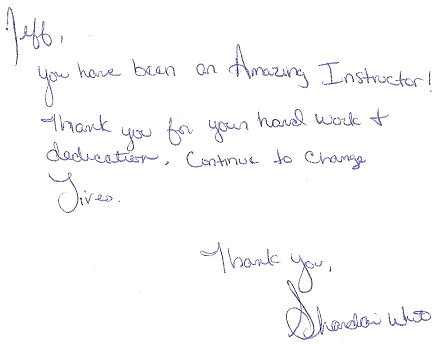 Jeff,
you have been an Amazing Instructor!
Thank you for your hard work +
dedication. Continue to change
Lives.
Thank you,